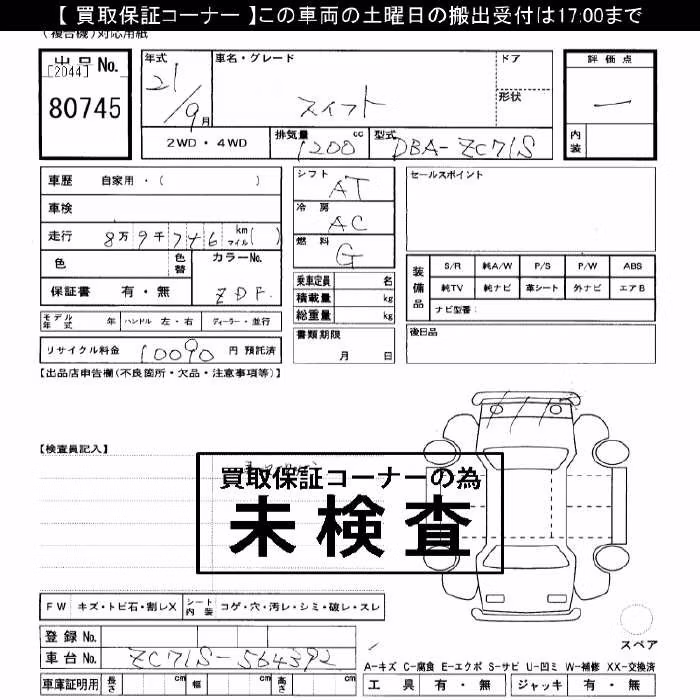 【 買取保証コーナー 】この車両の土曜日の搬出受付は17:00まで
(複合機)対応用紙
出品No.
[2044]
80745
年式
21/9月
車名・グレード
スイフト
ドア
形状
評価点
一
内装
2WD・4WD
排気量 1200 cc
型式 DBA-ZC71S
車歴 自家用・( )
車検
走行 8万9千7百+6 km マイル( )
色 色替 カラーNo.
保証書 有・無 ZDF.
モデル年式 年 ハンドル 左・右 ディーラー・並行
リサイクル料金 10090 円 預託済
シフト AT
冷房 AC
燃料 G
乗車定員 名
積載量 kg
総重量 kg
書類期限
月 日
セールスポイント
装備品
S/R 純A/W P/S P/W ABS
純TV 純ナビ 革シート 外ナビ エアB
ナビ型番:
後日品
【出品店申告欄(不良箇所・欠品・注意事項等)】
【検査員記入】
買取保証コーナーの為
未検査
FW キズ・トビ石・割レX シート内装 コゲ・穴・汚レ・シミ・破レ・スレ
登録No.
車台No. ZC71S-564392
車庫証明用 長さ cm 幅 cm 高さ cm
スペア
A-キズ C-腐食 E-エクボ S-サビ U-凹ミ W-補修 XX-交換済
工具 有・無 ジャッキ 有・無